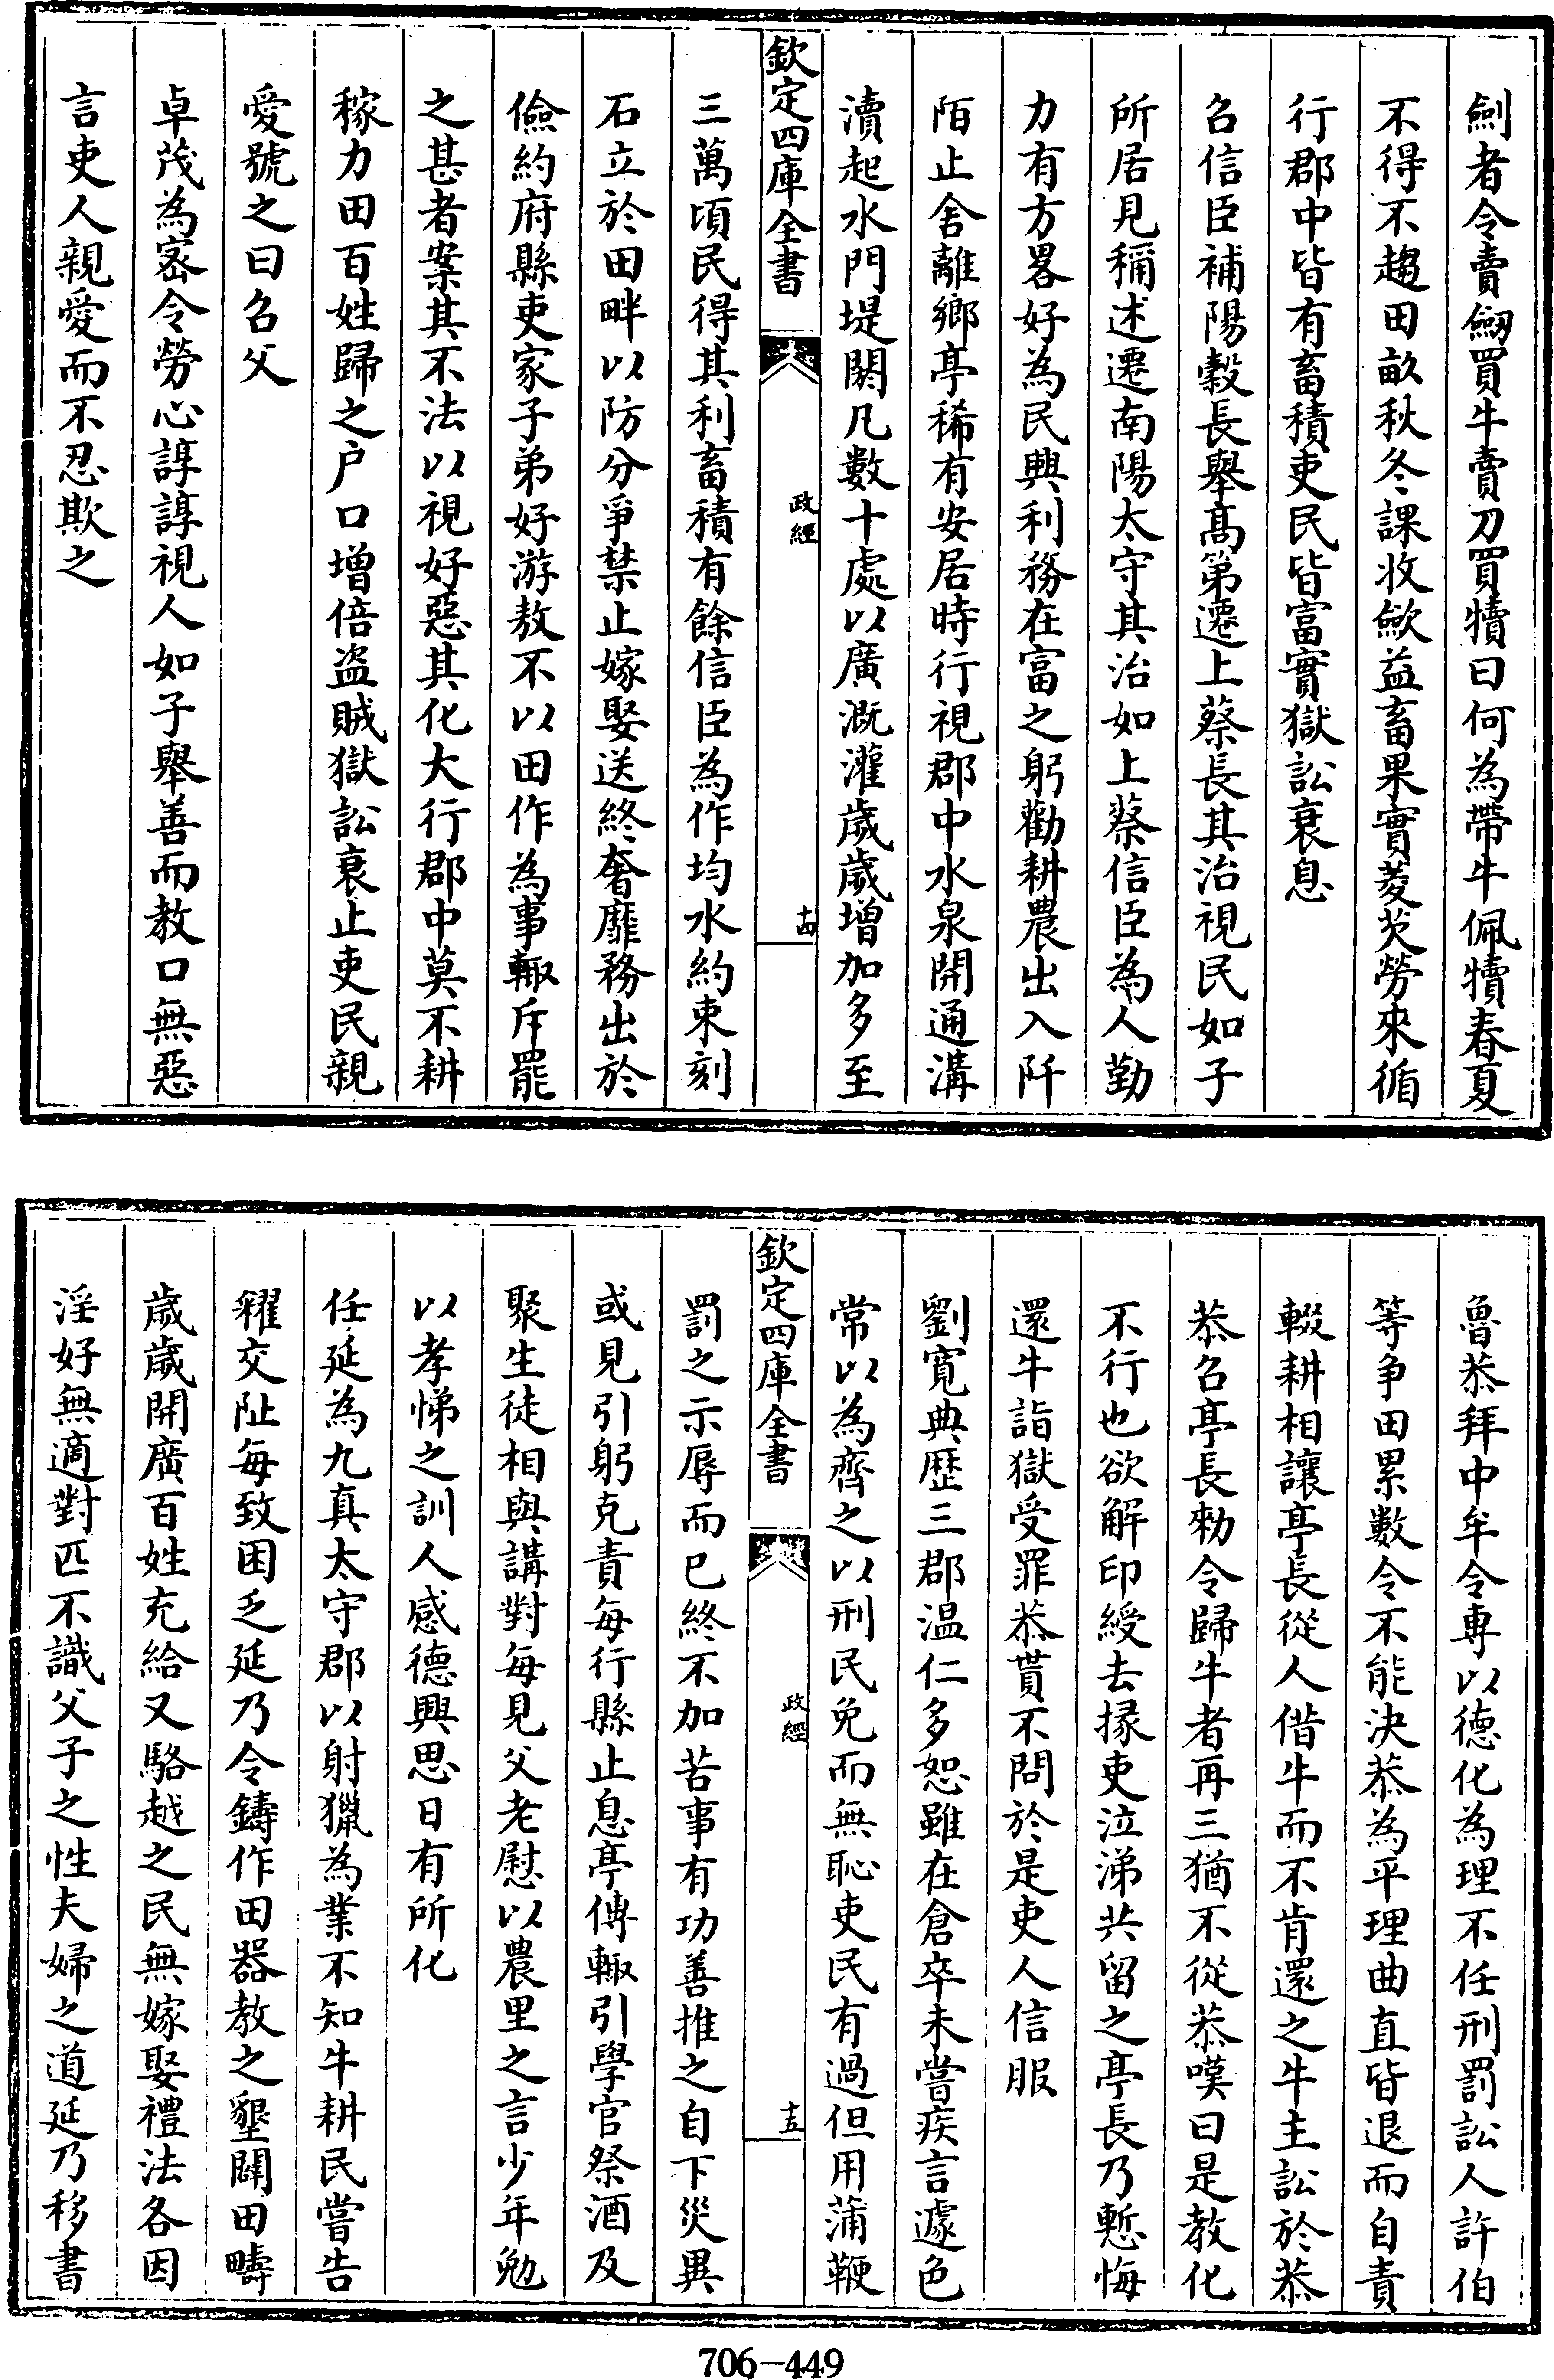 劍者令賣劒買牛賣刀買犢曰何為帶牛佩犢春夏
不得不趨田畝秋冬課收歛益畜果實菱芡勞來循
行郡中皆有畜積吏民皆富實獄訟衰息
召信臣補陽穀長舉髙第遷上蔡長其治視民如子
所居見稱述遷南陽太守其治如上蔡信臣為人勤
力有方畧好為民興利務在富之躬勸耕農出入阡
陌止舍離鄉亭稀有安居時行視郡中水泉開通溝
瀆起水門堤閼凡數十處以廣溉灌歲歲增加多至
欽定四庫全書
政經
十四
三萬頃民得其利畜積有餘信臣為作均水約束刻
石立於田畔以防分爭禁止嫁娶送終奢靡務出於
儉約府縣吏家子弟好游敖不以田作為事輙斥罷
之甚者案其不法以視好惡其化大行郡中莫不耕
稼力田百姓歸之户口增倍盗賊獄訟衰止吏民親
愛號之曰召父
卓茂為宻令勞心諄諄視人如子舉善而教口無惡
言吏人親愛而不忍欺之
魯恭拜中牟令專以德化為理不任刑罰訟人許伯
等争田累數令不能決恭為平理曲直皆退而自責
輟耕相讓亭長從人借牛而不肯還之牛主訟於恭
恭召亭長勑令歸牛者再三猶不從恭嘆曰是教化
不行也欲解印綬去掾吏泣涕共留之亭長乃慙悔
還牛詣獄受罪恭貰不問於是吏人信服
劉寛典歴三郡温仁多恕雖在倉卒未嘗疾言遽色
常以為齊之以刑民免而無恥吏民有過但用蒲鞭
欽定四庫全書
政經
十五
罰之示辱而已終不加苦事有功善推之自下災異
或見引躬克責每行縣止息亭傳輙引學官祭酒及
聚生徒相與講對每見父老慰以農里之言少年勉
以孝悌之訓人感德興思日有所化
任延為九真太守郡以射獵為業不知牛耕民嘗告
糴交阯每致困乏延乃令鑄作田器教之墾闢田疇
歲歲開廣百姓充給又駱越之民無嫁娶禮法各因
淫好無適對匹不識父子之性夫婦之道延乃移書
706-449